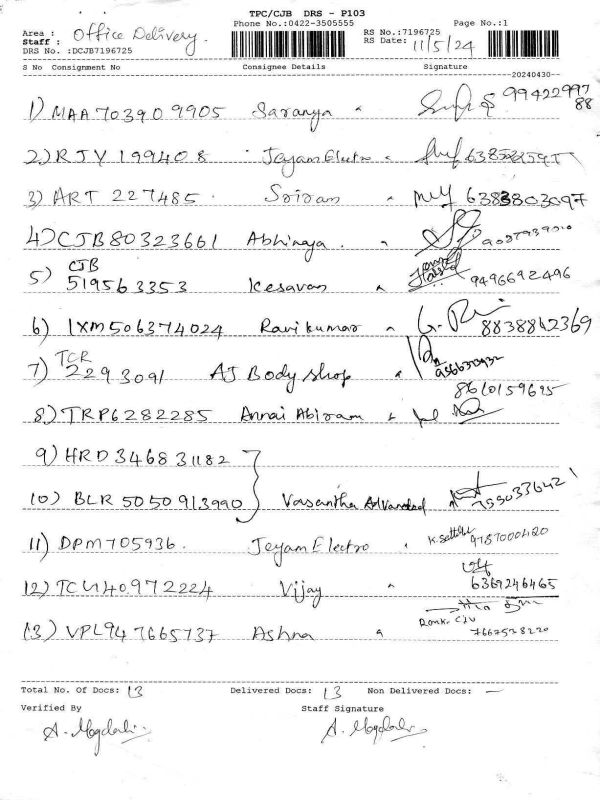 TPC/CJB DRS - P103
Area : Office Delivery. Phone No.:0422-3505555 Page No.:1
Staff : RS No.:7196725
DRS No. :DCJB7196725 RS Date: 11/5/24
S No Consignment No Consignee Details Signature
20240430
1) MAA703909905 Saranya 99422997 88
2) RJY 199408 Jeyam Electro
3) ART 227485. Sriram 6383803097
4) CJB80323661 Abhinaya
5) CJB 519563353 Kesavan 9496692496
6) IXM506374024 Ravikumar 8838862369
7) TCR 2293091 AJ Body shop
8610159695
8) TRP6282285 Annai Abiram
9) HRD346831182
10) BLR 5050913990 Vasantha Advanced 7550336421
11) DPM705936. Jeyam Electro 9787000420
12) TCV140972224 Vijay 6369246465
13) VPL947665737 Ashna 7667528220
Total No. Of Docs: 13 Delivered Docs: 13 Non Delivered Docs: —
Verified By Staff Signature